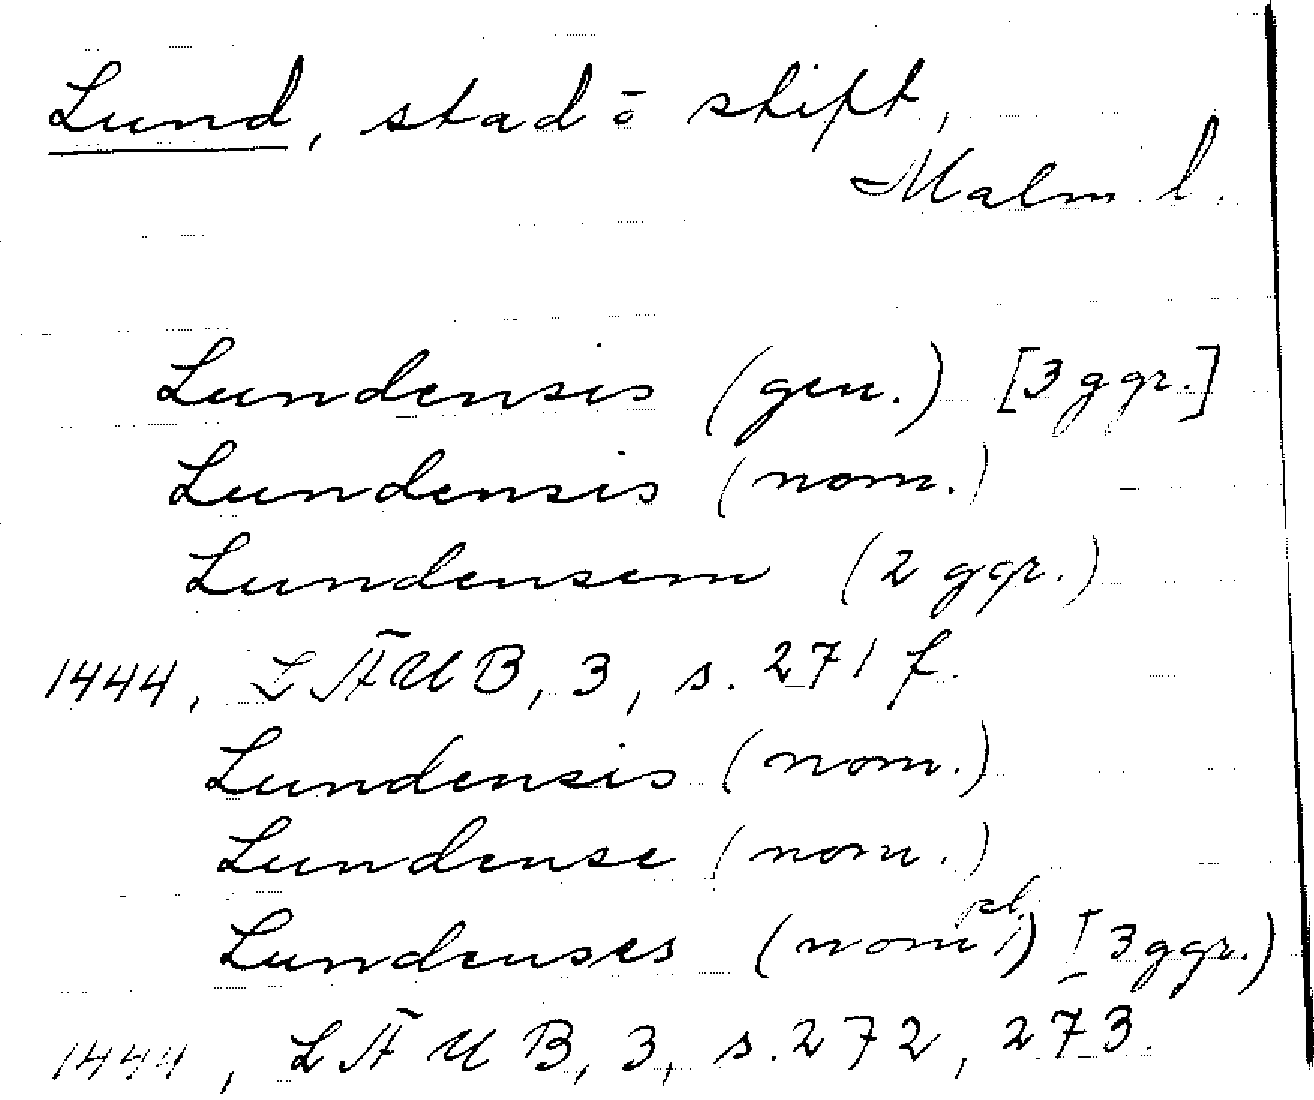 Lund, stad o̅ stift,
Malm l.
Lundensis (gen.) [3 ggr.]
Lundensis (nom.)
Lundensem (2 ggr.)
1444, LÄUB, 3, s. 271 f.
Lundensis (nom.)
Lundense (nom.)
Lundenses (nom pl.) [3 ggr.)
1444, LÄUB, 3, s. 272, 273.